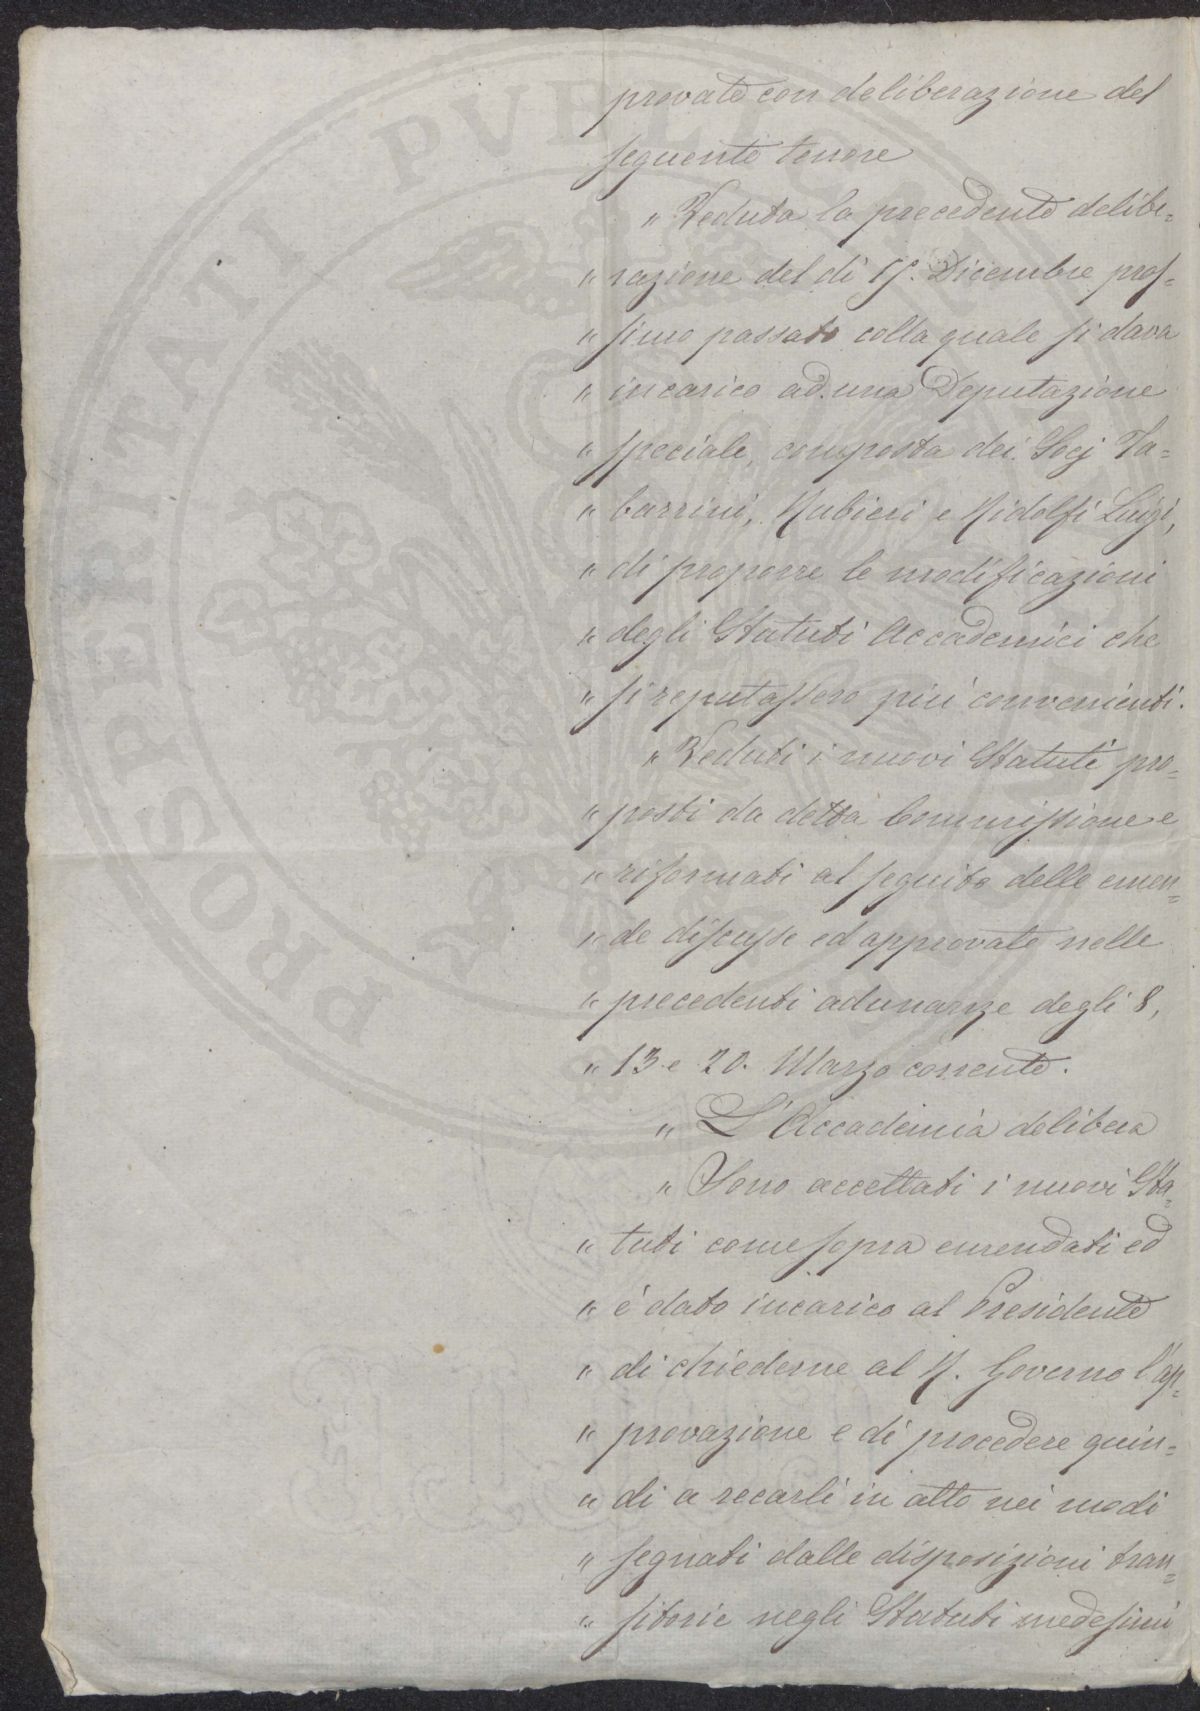 provato con deliberazione del
seguente tenore
" Veduta la precedente delibe=
" razione del dì 15. Dicembre pros=
" simo passato colla quale si dava
" incarico ad una Deputazione
" speciale, composta dei Socj Ta=
" barrini, Rubieri e Ridolfi Luigi,
" di proporre le modificazioni
" degli Statuti Accademici che
" si reputassero più convenienti.
" Veduti i nuovi Statuti pro=
" posti da detta Commissione e
" riformati al seguito delle emen=
" de discusse ed approvate nelle
" precedenti adunanze degli 8,
" 13 e 20. Marzo corrente.
" L'Accademia delibera
" Sono accettati i nuovi Sta=
" tuti come sopra emendati ed
" è dato incarico al Presidente
" di chiederne al R. Governo l'ap=
" provazione e di procedere quin=
" di a recarli in atto nei modi
" segnati dalle disposizioni tran=
" sitorie negli Statuti medesimi
PROSPERITATI PVBLICAE